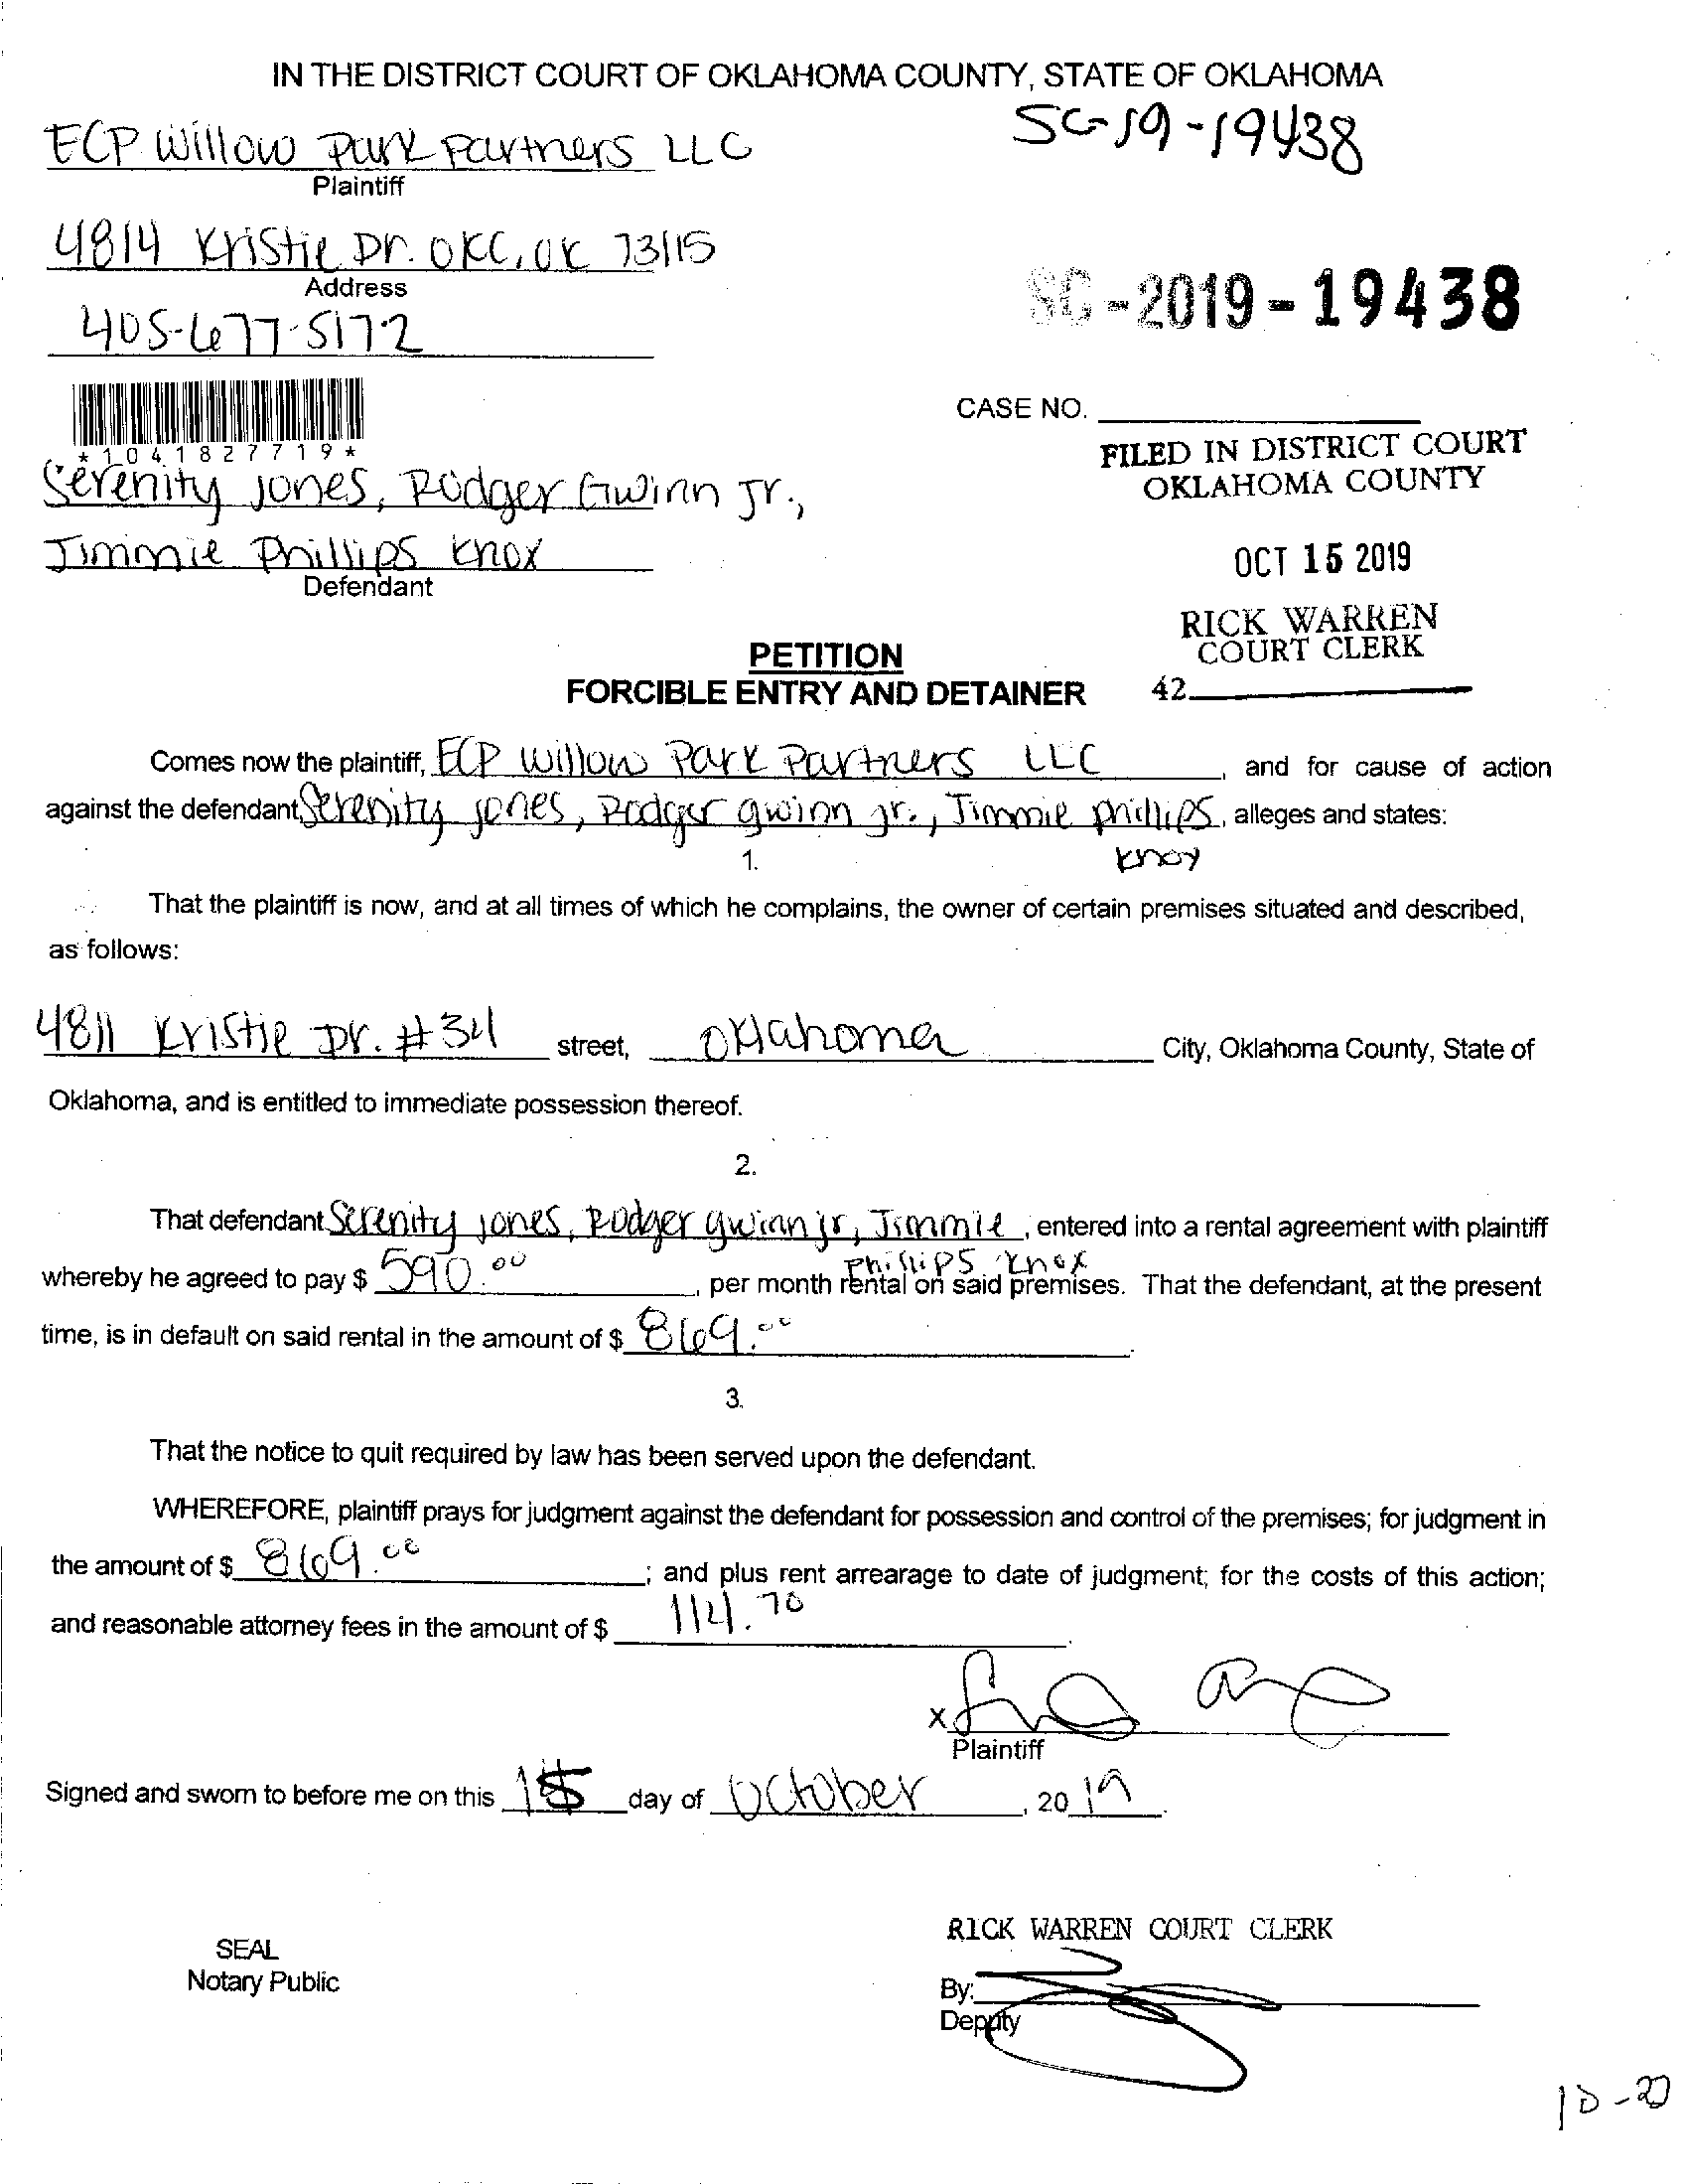 IN THE DISTRICT COURT OF OKLAHOMA COUNTY, STATE OF OKLAHOMA
SC-19-19438
ECP Willow Park Partners LLC
Plaintiff
4814 Kristie Dr. OKC, OK 73115
Address
SC-2019-19438
405-677-5172
CASE NO.
*1041827719*
FILED IN DISTRICT COURT
OKLAHOMA COUNTY
Serenity Jones, Rodger Gwinn Jr.,
Jimmie Phillips Knox
Defendant
OCT 15 2019
RICK WARREN
COURT CLERK
42
PETITION
FORCIBLE ENTRY AND DETAINER
Comes now the plaintiff, ECP Willow Park Partners LLC, and for cause of action
against the defendant Serenity Jones, Rodger Gwinn Jr., Jimmie Phillips, alleges and states:
Knox
1.
That the plaintiff is now, and at all times of which he complains, the owner of certain premises situated and described,
as follows:
4811 Kristie Dr. #34 street, Oklahoma City, Oklahoma County, State of
Oklahoma, and is entitled to immediate possession thereof.
2.
That defendant Serenity Jones, Rodger Gwinn Jr, Jimmie, entered into a rental agreement with plaintiff
Phillips Knox
whereby he agreed to pay $ 590.00, per month rental on said premises. That the defendant, at the present
time, is in default on said rental in the amount of $ 869.00.
3.
That the notice to quit required by law has been served upon the defendant.
WHEREFORE, plaintiff prays for judgment against the defendant for possession and control of the premises; for judgment in
the amount of $ 869.00; and plus rent arrearage to date of judgment; for the costs of this action;
and reasonable attorney fees in the amount of $ 114.70.
x
Plaintiff
Signed and sworn to before me on this 15 day of October, 2019.
RICK WARREN COURT CLERK
SEAL
Notary Public
By:
Deputy